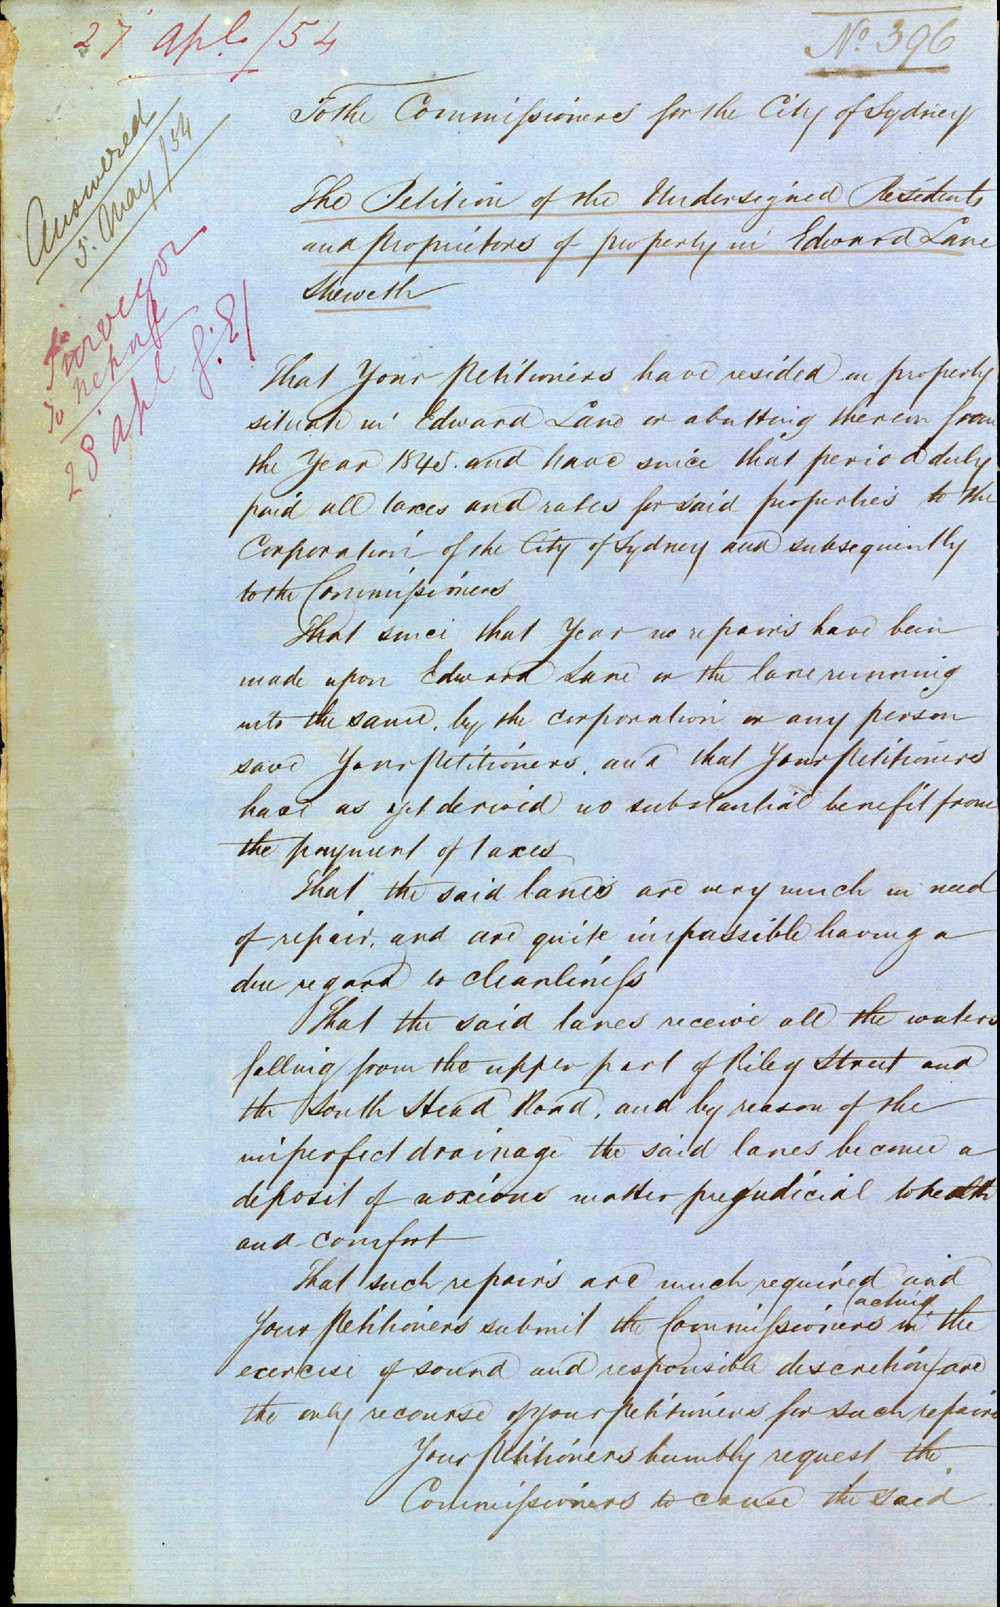 27 Apl /54
No. 396
Answered
5. May /54
To
Surveyor
to report
28 Apl
To the Commissioners for the City of Sydney
The Petition of the Undersigned Residents
and Proprietors of property in Edward Lane
Sheweth
That Your Petitioners have resided in property
situate in Edward Lane or abutting thereon from
the Year 1845. and have since that period duly
paid all taxes and rates for said properties to the
Corporation of the City of Sydney and subsequently
to the Commissioners
That since that Year no repairs have been
made upon Edward Lane or the lane running
into the same, by the corporation or any person
save Your Petitioners, and that Your Petitioners
have as yet derived no substantial benefit from
the payment of taxes
That the said lanes are very much in need
of repair, and are quite impassible having a
due regard to cleanliness
That the said lanes receive all the waters
falling from the upper part of Riley Street and
the South Head Road, and by reason of the
imperfect drainage the said lanes become a
deposit of noxious matter prejudicial to health
and comfort
That such repairs are much required and
Your Petitioners submit the Commissioners (acting in the
exercise of sound and responsible discretion) are
the only recourse of your petitioners for such repairs
Your Petitioners humbly request the
Commissioners to cause the said